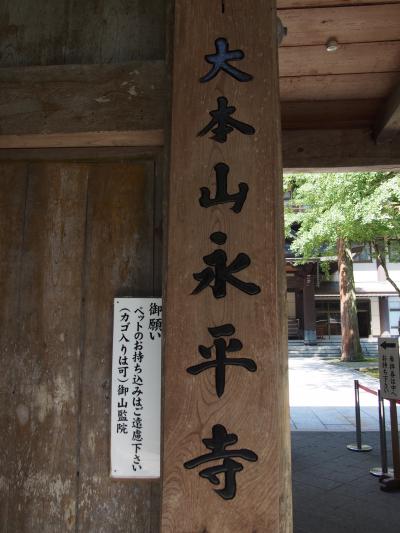 大本山永平寺
御願い
ペットのお持ち込みはご遠慮下さい
(カゴ入りは可)御山監院